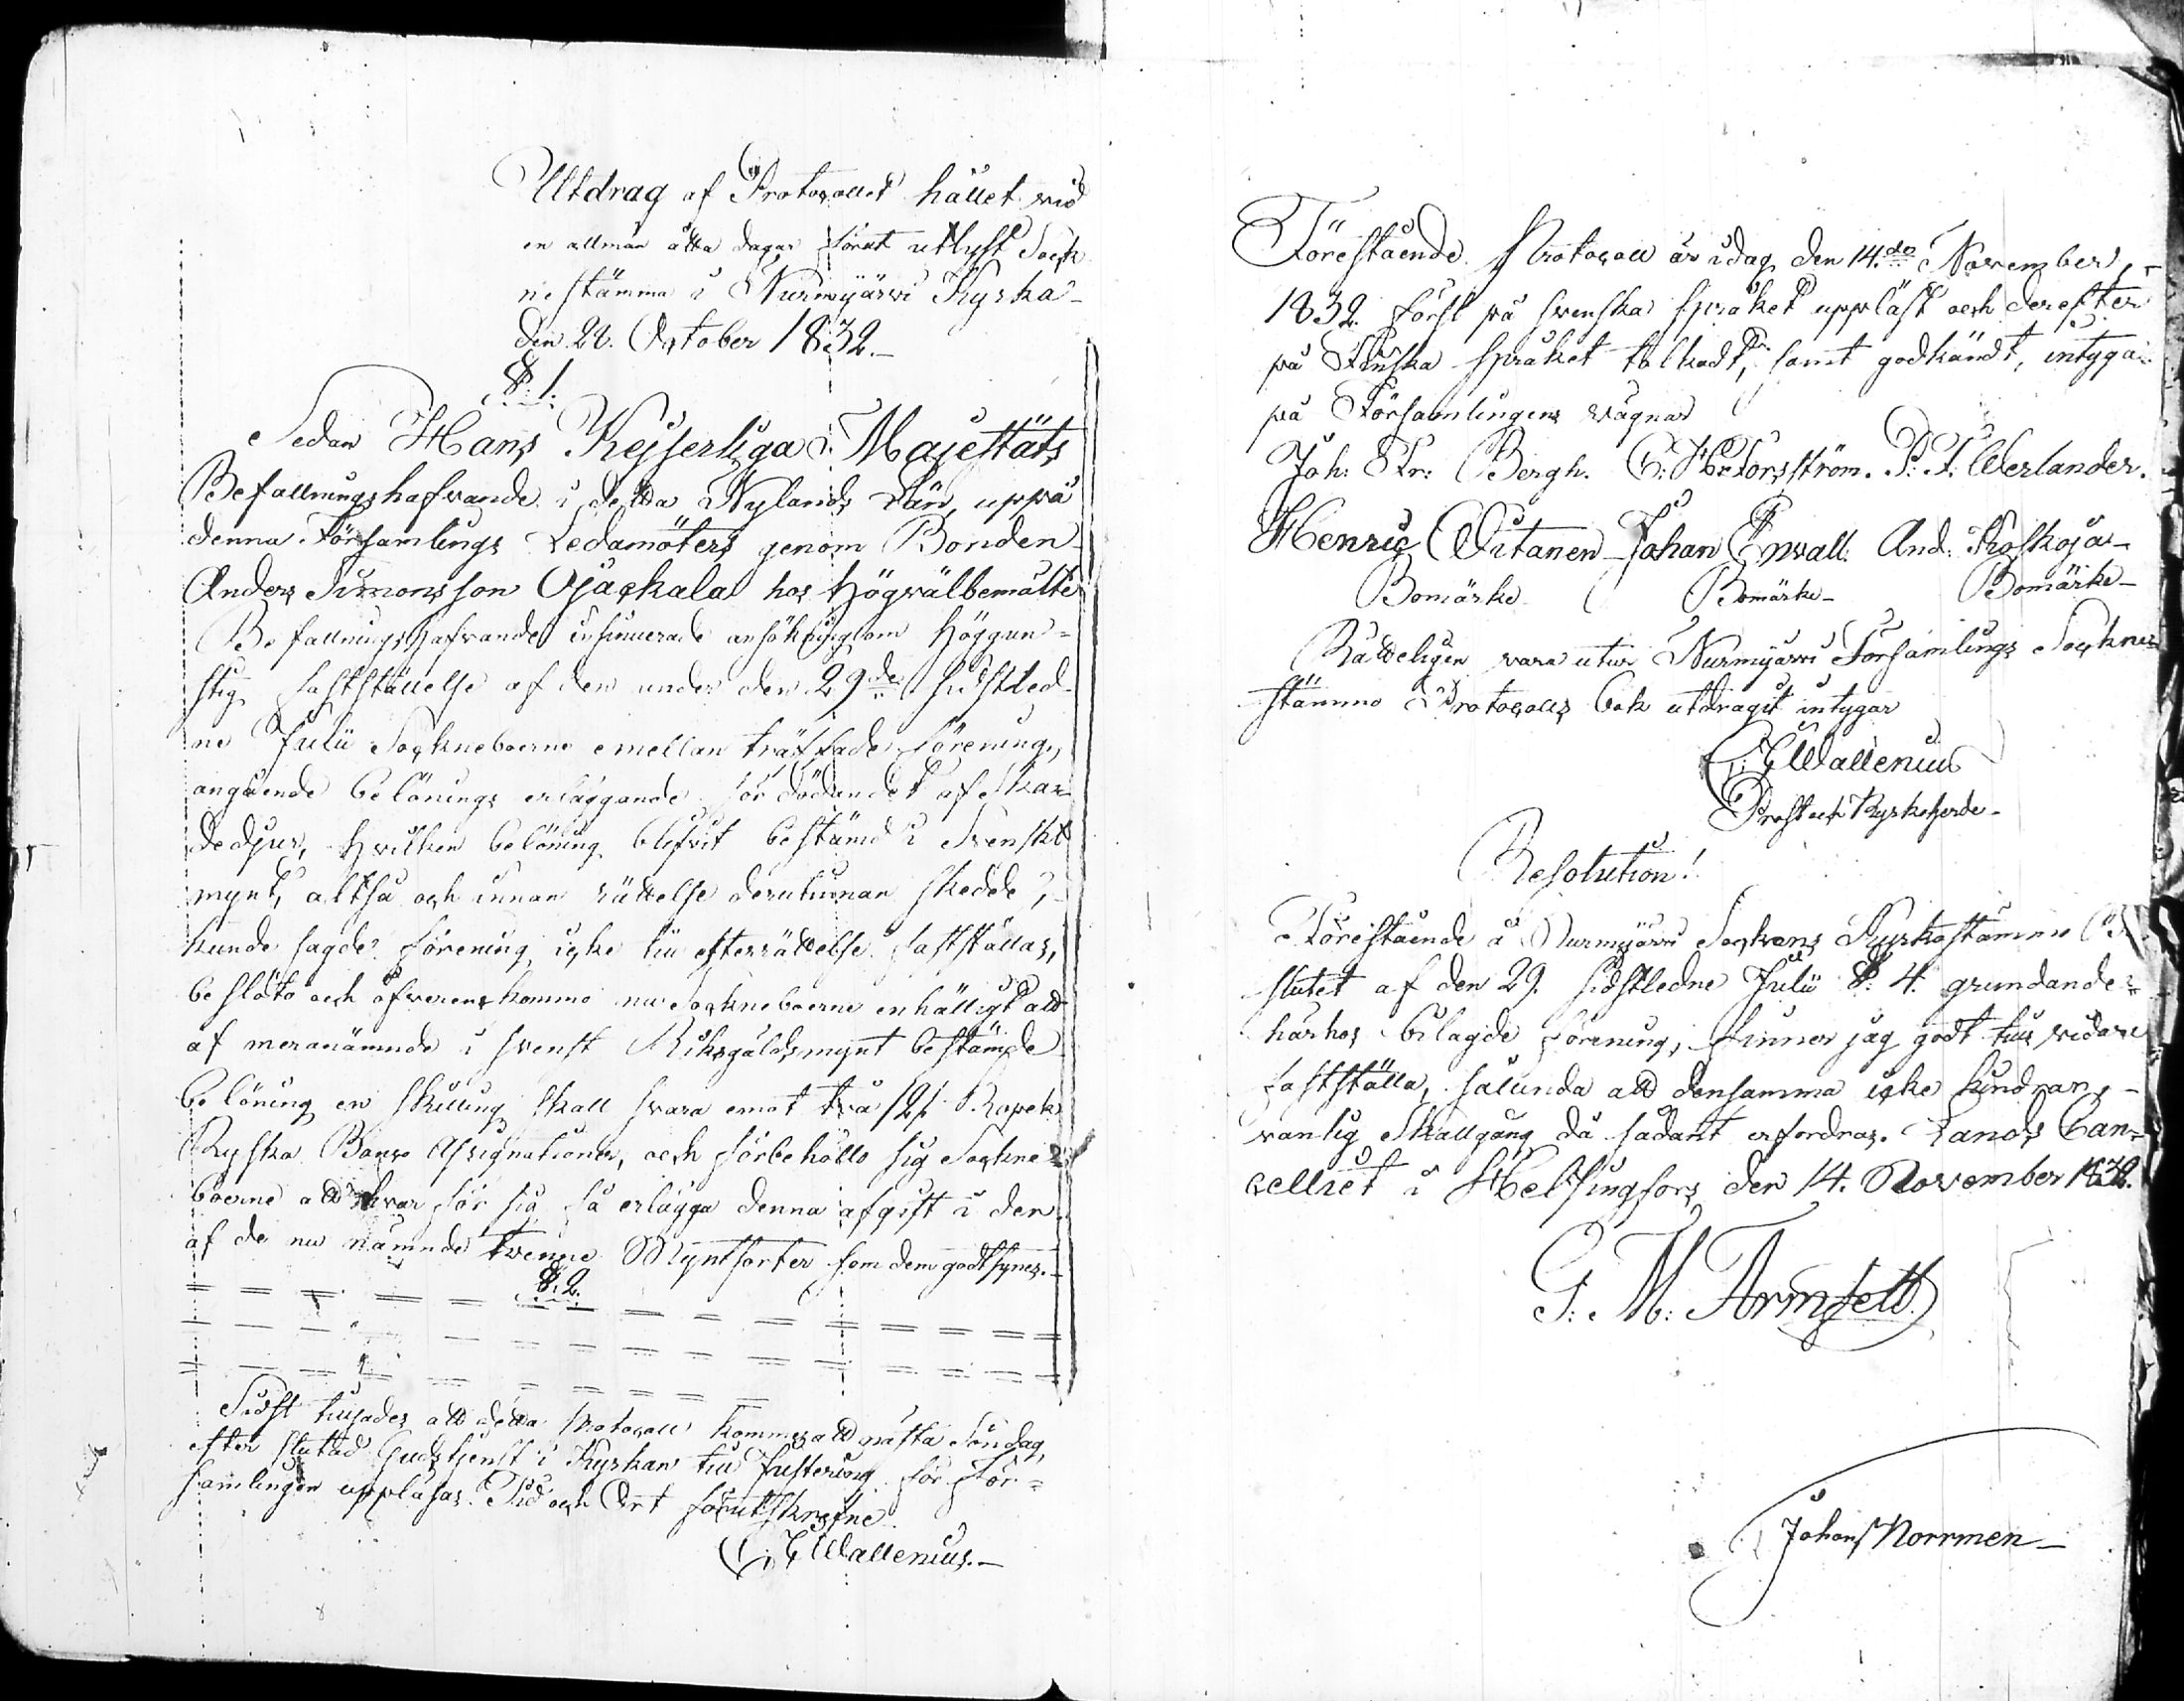 Utdrag af Protocollet hållet vid
en allmän åtta dagar förut utlyst Sock
nestämma i Nurmijärvi Kyrka
den 28. October 1832.
§. 1.
Sedan Hans Kejserliga Majestäts
Befallningshafvande i detta Nylands Län, uppå
denna Församlings Ledamöters genom Bonden
Anders Simonsson Ojackala hos Högvälbemälte
Befallningshafvande insinuerade ansökning om Höggun=
stig fastställelse af den under den 29de sidstled
ne Julii Sockneboerne emellan träffade förening,
angående belönings erläggande för dödandet af Ska
dedjur, hvilken belöning blifvit bestämd i Svenskt
mynt, altså och innan rättelse derutinnan skedde,
kunde sagde förening icke till efterrättelse fastställas,
beslöto och öfverenskommo nu Sockneboerne enhälligt att
af meranämnde i svenst Riksgäldsmynt bestämde
belöning en skilling skall svara emot två /2/. Kopek
Ryska Banco Assignationer, och förbehöllo sig Sockne
boerne att hvar för sig få erlägga denna afgift i den
af de nu nämnde tvenne Myntsorter som dem godt synes.
§. 2.
Sidst tillsades att detta Protocoll kommer att nästa Söndag,
efter slutad Gudstjenst i Kyrkan till Justering för För=
samlingen uppläsas. Tid och Ort förutskrefne
C: E Wallenius.
Förestående Protocoll är idag den 14.de November,
1832. först på svenska språket uppläst och derefter
på Finska språket tolkadt, samt godkändt, intyga
på Församlingens vägnar
Joh: Fr: Bergh. C: Hectorsström. P: F: Werlander.
Henric Oitanen Johan Envall. And: Koskoja
Bomärke Bomärke Bomärke
Rätteligen vara utur Nurmijärvi Församlings Sockne
stämmo Protocolls bok utdragit intygar
C: E Wallenius
Prost och Kyrkoherde
Resolution!
Förestående å Nurmijärvi Sockens Kyrkostämmo Be
slutet af den 29. sidstledne Julii §. 4. grundande
härhos bilagde förening, finner jag godt till vidare
fastställa, sålunda att densamma icke hindrar
vanlig Skallgång då sådant erfordras. Lands Can=
celliet i Helsingfors den 14. November 1832.
G: M: Armfelt
Johan Norrmen